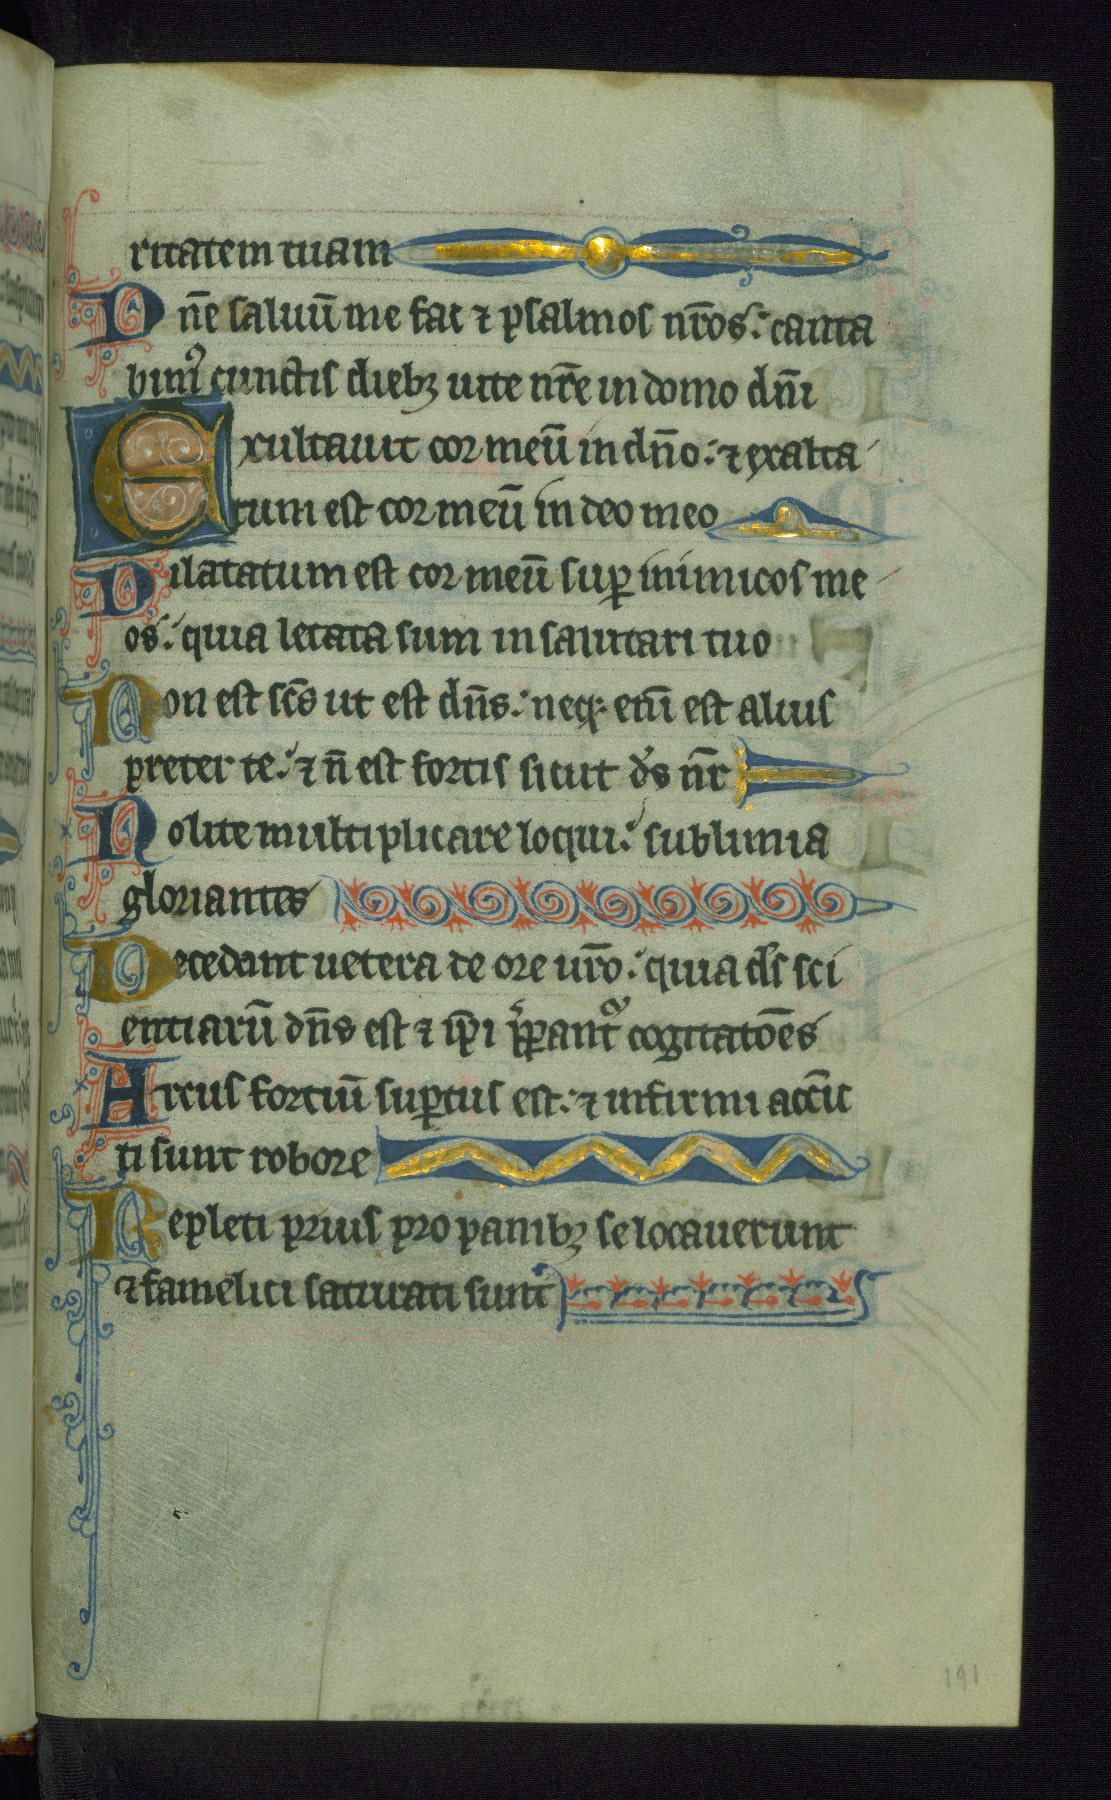 ritatem tuam
Dn̄e saluū me fac ⁊ psalmos nr̄os: canta
bimꝰ cunctis diebꝫ uite nr̄e in domo dn̄i
Exultauit cor meū in dn̄o: ⁊ exalta
tum est cor meū in deo meo
Dilatatum est cor meū suꝑ inimicos me
os: quia letata sum in salutari tuo
Non est sc̄s ut est dn̄s: neqꝫ eni̅ est alius
preter te: ⁊ n̄ est fortis sicut ds̄ nr̄
Nolite multiplicare loqui: sublimia
gloriantes
Recedant uetera de ore ur̄o: quia ds̄ sci
entiarū dn̄s est ⁊ ip̄i p̄ꝑantᷣ cogitatōēs
Arcus fortiū suꝑatus est: ⁊ infirmi acc̄ic
ti sunt robore
Repleti prius pro panibꝫ se locauerunt
⁊ famelici saturati sunt
191